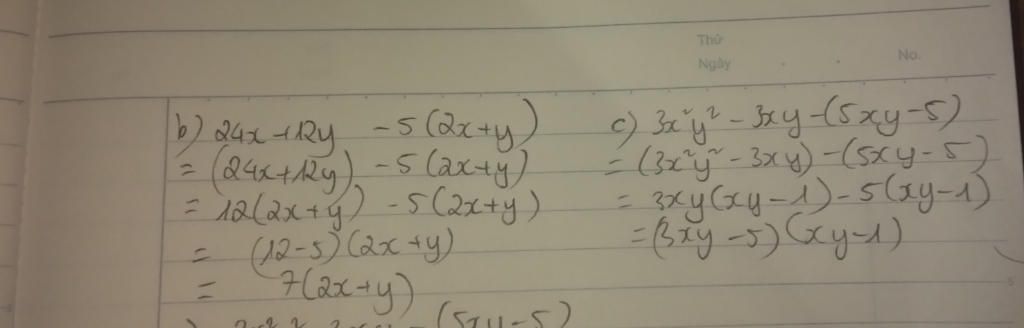 Thứ
Ngày No.
b) 24x+12y -5(2x+y)
= (24x+12y) -5(2x+y)
= 12(2x+y) -5(2x+y)
= (12-5)(2x+y)
= 7(2x+y)
c) 3x²y² - 3xy -(5xy-5)
= (3x²y² - 3xy) -(5xy-5)
= 3xy(xy-1)-5(xy-1)
= (3xy-5)(xy-1)
(5xy-5)